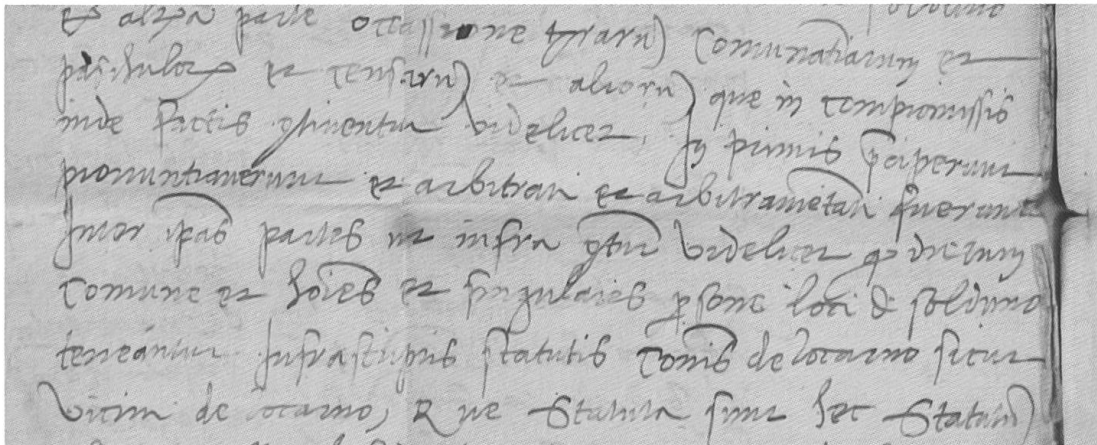 et alt(er)a parte occassione terraru(m) Comunantiarum et
pascuulor(um) et tensaru(m) et alioru(m) que in compromissis
inde factis (con)tinentur videlicet. In primis p(re)ceperunt
pronuntiaverunt et arbitrati et arbitramentati fuerunt
Inter ip(s)as partes ut infra (con)t(inet)ur videlicet q(uod) dictum
Comune et ho(m)i(n)es et singulares p(er)sone loci de solduno
teneantur Infrascriptis statutis Co(mu)nis de locarno sicut
vicini de locarno, Que Statuta sunt hec Statutu(m)